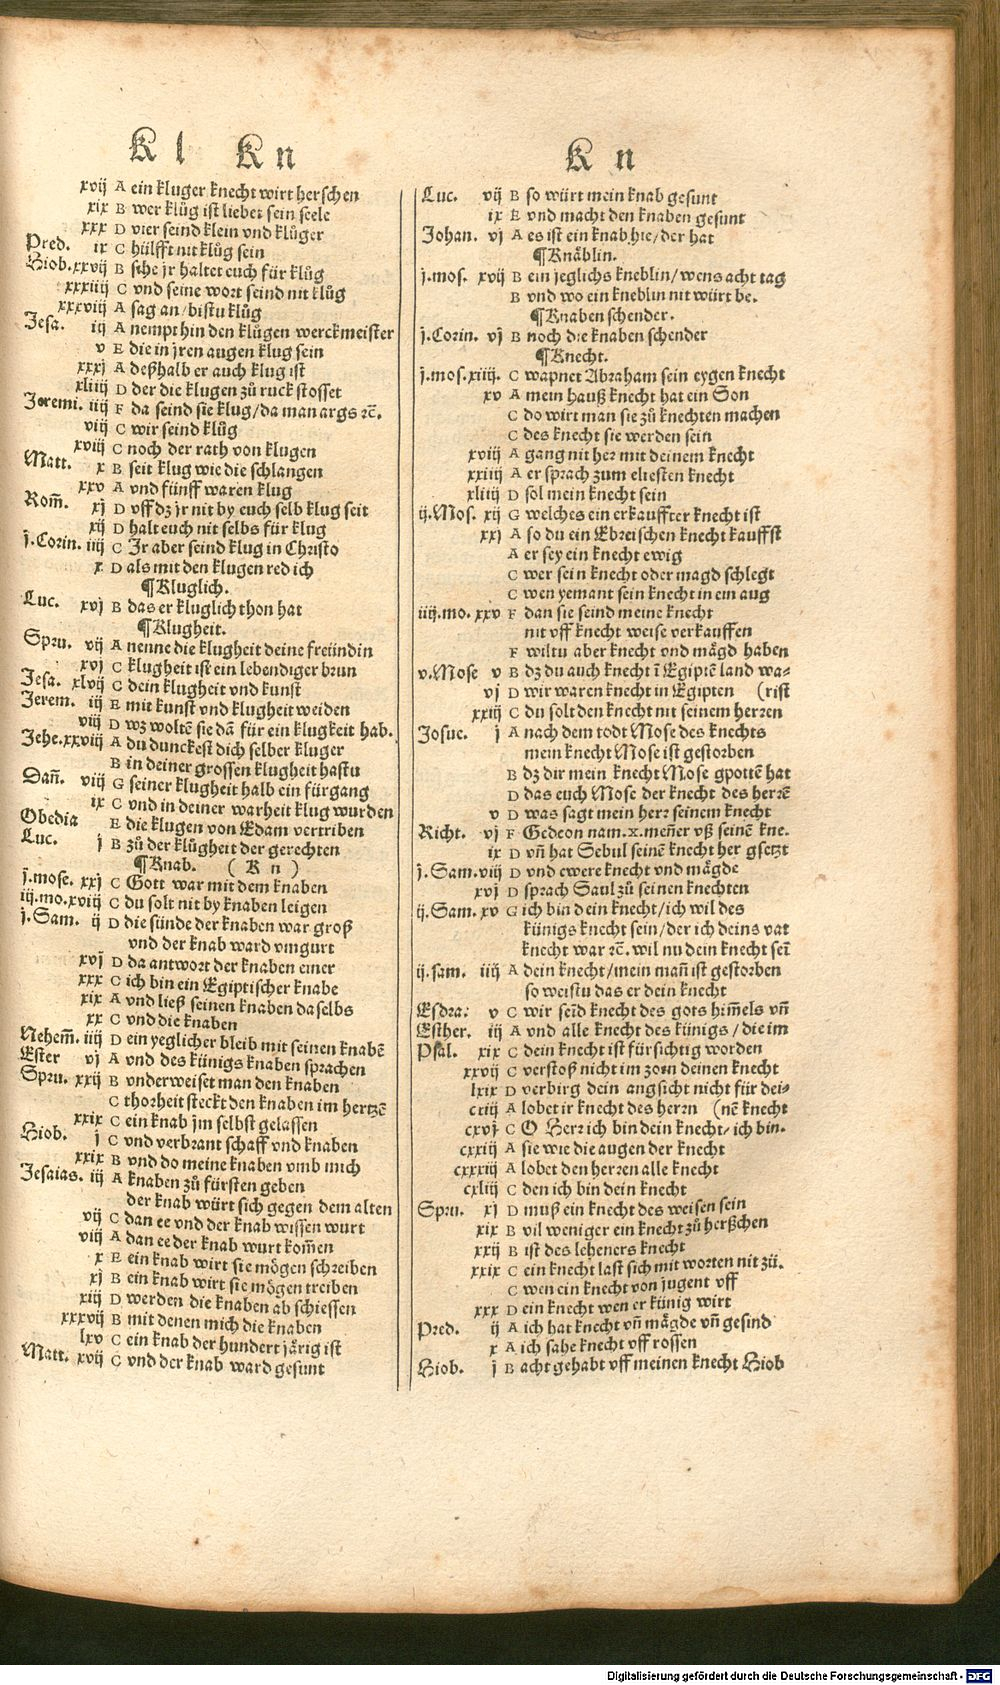 Kl Kn
xvij A ein kluger knecht wirt herschen
xix B wer klůg ist liebet sein seele
xxx D vier seind klein vnd klůger
Pred. ix C hülfft nit klůg sein
Hiob. xxvij B sihe jr haltet euch für klůg
xxxiiij C vnd seine wort seind nit klůg
xxxviij A sag an/bistu klůg
Jesa. iij A nempt hin den klůgen werckmeister
v E die in jren augen klug sein
xxxj A deßhalb er auch klug ist
xliiij D der die klugen zů ruck stosset
Jeremi. iiij F da seind sie klug/da man args ꝛc̄.
viij C wir seind klůg
xviij C noch der rath von klugen
Matt. x B seit klug wie die schlangen
xxv A vnd fünff waren klug
Rom̄. xj D vff dz jr nit by euch selb klug seit
xij D halt euch nit selbs für klug
j.Corin. iiij C Jr aber seind klug in Christo
x D als mit den klugen red ich
¶Kluglich.
Luc. xvj B das er kluglich thon hat
¶Klugheit.
Spru. vij A nenne die klugheit deine freündin
xvj C klugheit ist ein lebendiger brun
Jesa. xlvij C dein klugheit vnd kunst
Jerem. iij E mit kunst vnd klugheit weiden
viij D wz woltē sie dā für ein klugkeit hab.
Jehe. xxviij A du dunckest dich selber kluger
B in deiner grossen klugheit hastu
Dan̄. viij G seiner klugheit halb ein fürgang
ix C vnd in deiner warheit klug wurden
Obedia E die klugen von Edam vertriben
Luc. j B zů der klůgheit der gerechten
¶Knab. (Kn)
j.mose. xxj C Gott war mit dem knaben
iij.mo.xviij C du solt nit by knaben leigen
j.Sam. ij D die sünde der knaben war groß
vnd der knab ward vmgurt
xvj D da antwort der knaben einer
xxx C ich bin ein Egiptischer knabe
xix A vnd ließ seinen knaben daselbs
xx C vnd die knaben
Nehem̄. iiij D ein yeglicher bleib mit seinen knabē
Ester vj A vnd des künigs knaben sprachen
Spru. xxij B vnderweiset man den knaben
C thorheit steckt den knaben im hertzē
xxix C ein knab jm selbst gelassen
Hiob. j C vnd verbrant schaff vnd knaben
xxix B vnd do meine knaben vmb mich
Jesaias. iij A knaben zů fürsten geben
der knab würt sich gegen dem alten
vij C dan ee vnd der knab wissen wurt
viij A dan ee der knab wurt kom̄en
x E ein knab wirt sie mögen schreiben
xj B ein knab wirt sie mögen treiben
xiij D werden die knaben ab schiessen
xxxvij B mit denen mich die knaben
lxv C ein knab der hundert järig ist
Matt. xvij C vnd der knab ward gesunt
Kn
Luc. vij B so würt mein knab gesunt
ix E vnd macht den knaben gesunt
Johan. vj A es ist ein knab hie/der hat
¶Knäblin.
j.mos. xvij B ein jeglichs kneblin/wens acht tag
B vnd wo ein kneblin nit würt be.
¶Knaben schender.
j.Corin. vj B noch die knaben schender
¶Knecht.
j.mos.xiiij. C wapnet Abraham sein eygen knecht
xv A mein hauß knecht hat ein Son
C do wirt man sie zů knechten machen
C des knecht sie werden sein
xviij A gang nit her mit deinem knecht
xxiiij A er sprach zum eltesten knecht
xliiij D sol mein knecht sein
ij.Mos. xij G welches ein erkauffter knecht ist
xxj A so du ein Ebreischen knecht kauffst
A er sey ein knecht ewig
C wer sein knecht oder magd schlegt
C wen yemant sein knecht in ein aug
iij.mo. xxv F dan sie seind meine knecht
nit vff knecht weise verkauffen
F wiltu aber knecht vnd mägd haben
v.Mose v B dz du auch knecht ī Egiptē land wa-
vj D wir waren knecht in Egipten (rist
xxiij C du solt den knecht nit seinem herren
Josue. j A nach dem todt Mose des knechts
mein knecht Mose ist gestorben
B dz dir mein knecht Mose gpottē hat
D das euch Mose der knecht des herrē
v D was sagt mein herr seinem knecht
Richt. vj F Gedeon nam.x.men̄er vß seinē kne.
ix D vn̄ hat Sebul seinē knecht her gsetzt
j.Sam.viij D vnd ewere knecht vnd mägde
xvj D sprach Saul zů seinen knechten
ij.Sam. xv G ich bin dein knecht/ich wil des
künigs knecht sein/der ich deins vat
knecht war ꝛc̄. wil nu dein knecht sei
ij.sam. iiij A dein knecht/mein man̄ ist gestorben
so weistu das er dein knecht
Esdra: v C wir seīd knecht des gots him̄els vn̄
Esther. iij A vnd alle knecht des künigs/die im
Psal. xix C dein knecht ist fürsichtig worden
xxvij C verstoß nicht im zorn deinen knecht
lxix D verbirg dein angsicht nicht für dei-
cxiij A lobet ir knecht des herrn (nē knecht
cxvj C O Herr ich bin dein knecht/ich bin.
cxxiij A sie wie die augen der knecht
cxxxiij A lobet den herren alle knecht
cxliij C den ich bin dein knecht
Spru. xj D muß ein knecht des weisen sein
xix B vil weniger ein knecht zů herßchen
xxij B ist des leheners knecht
xxix C ein knecht last sich mit worten nit zü.
C wen ein knecht von jugent vff
xxx D ein knecht wen er künig wirt
Pred. ij A ich hat knecht vn̄ mägde vn̄ gesind
x A ich sahe knecht vff rossen
Hiob. j B acht gehabt vff meinen knecht Hiob
Digitalisierung gefördert durch die Deutsche Forschungsgemeinschaft - DFG